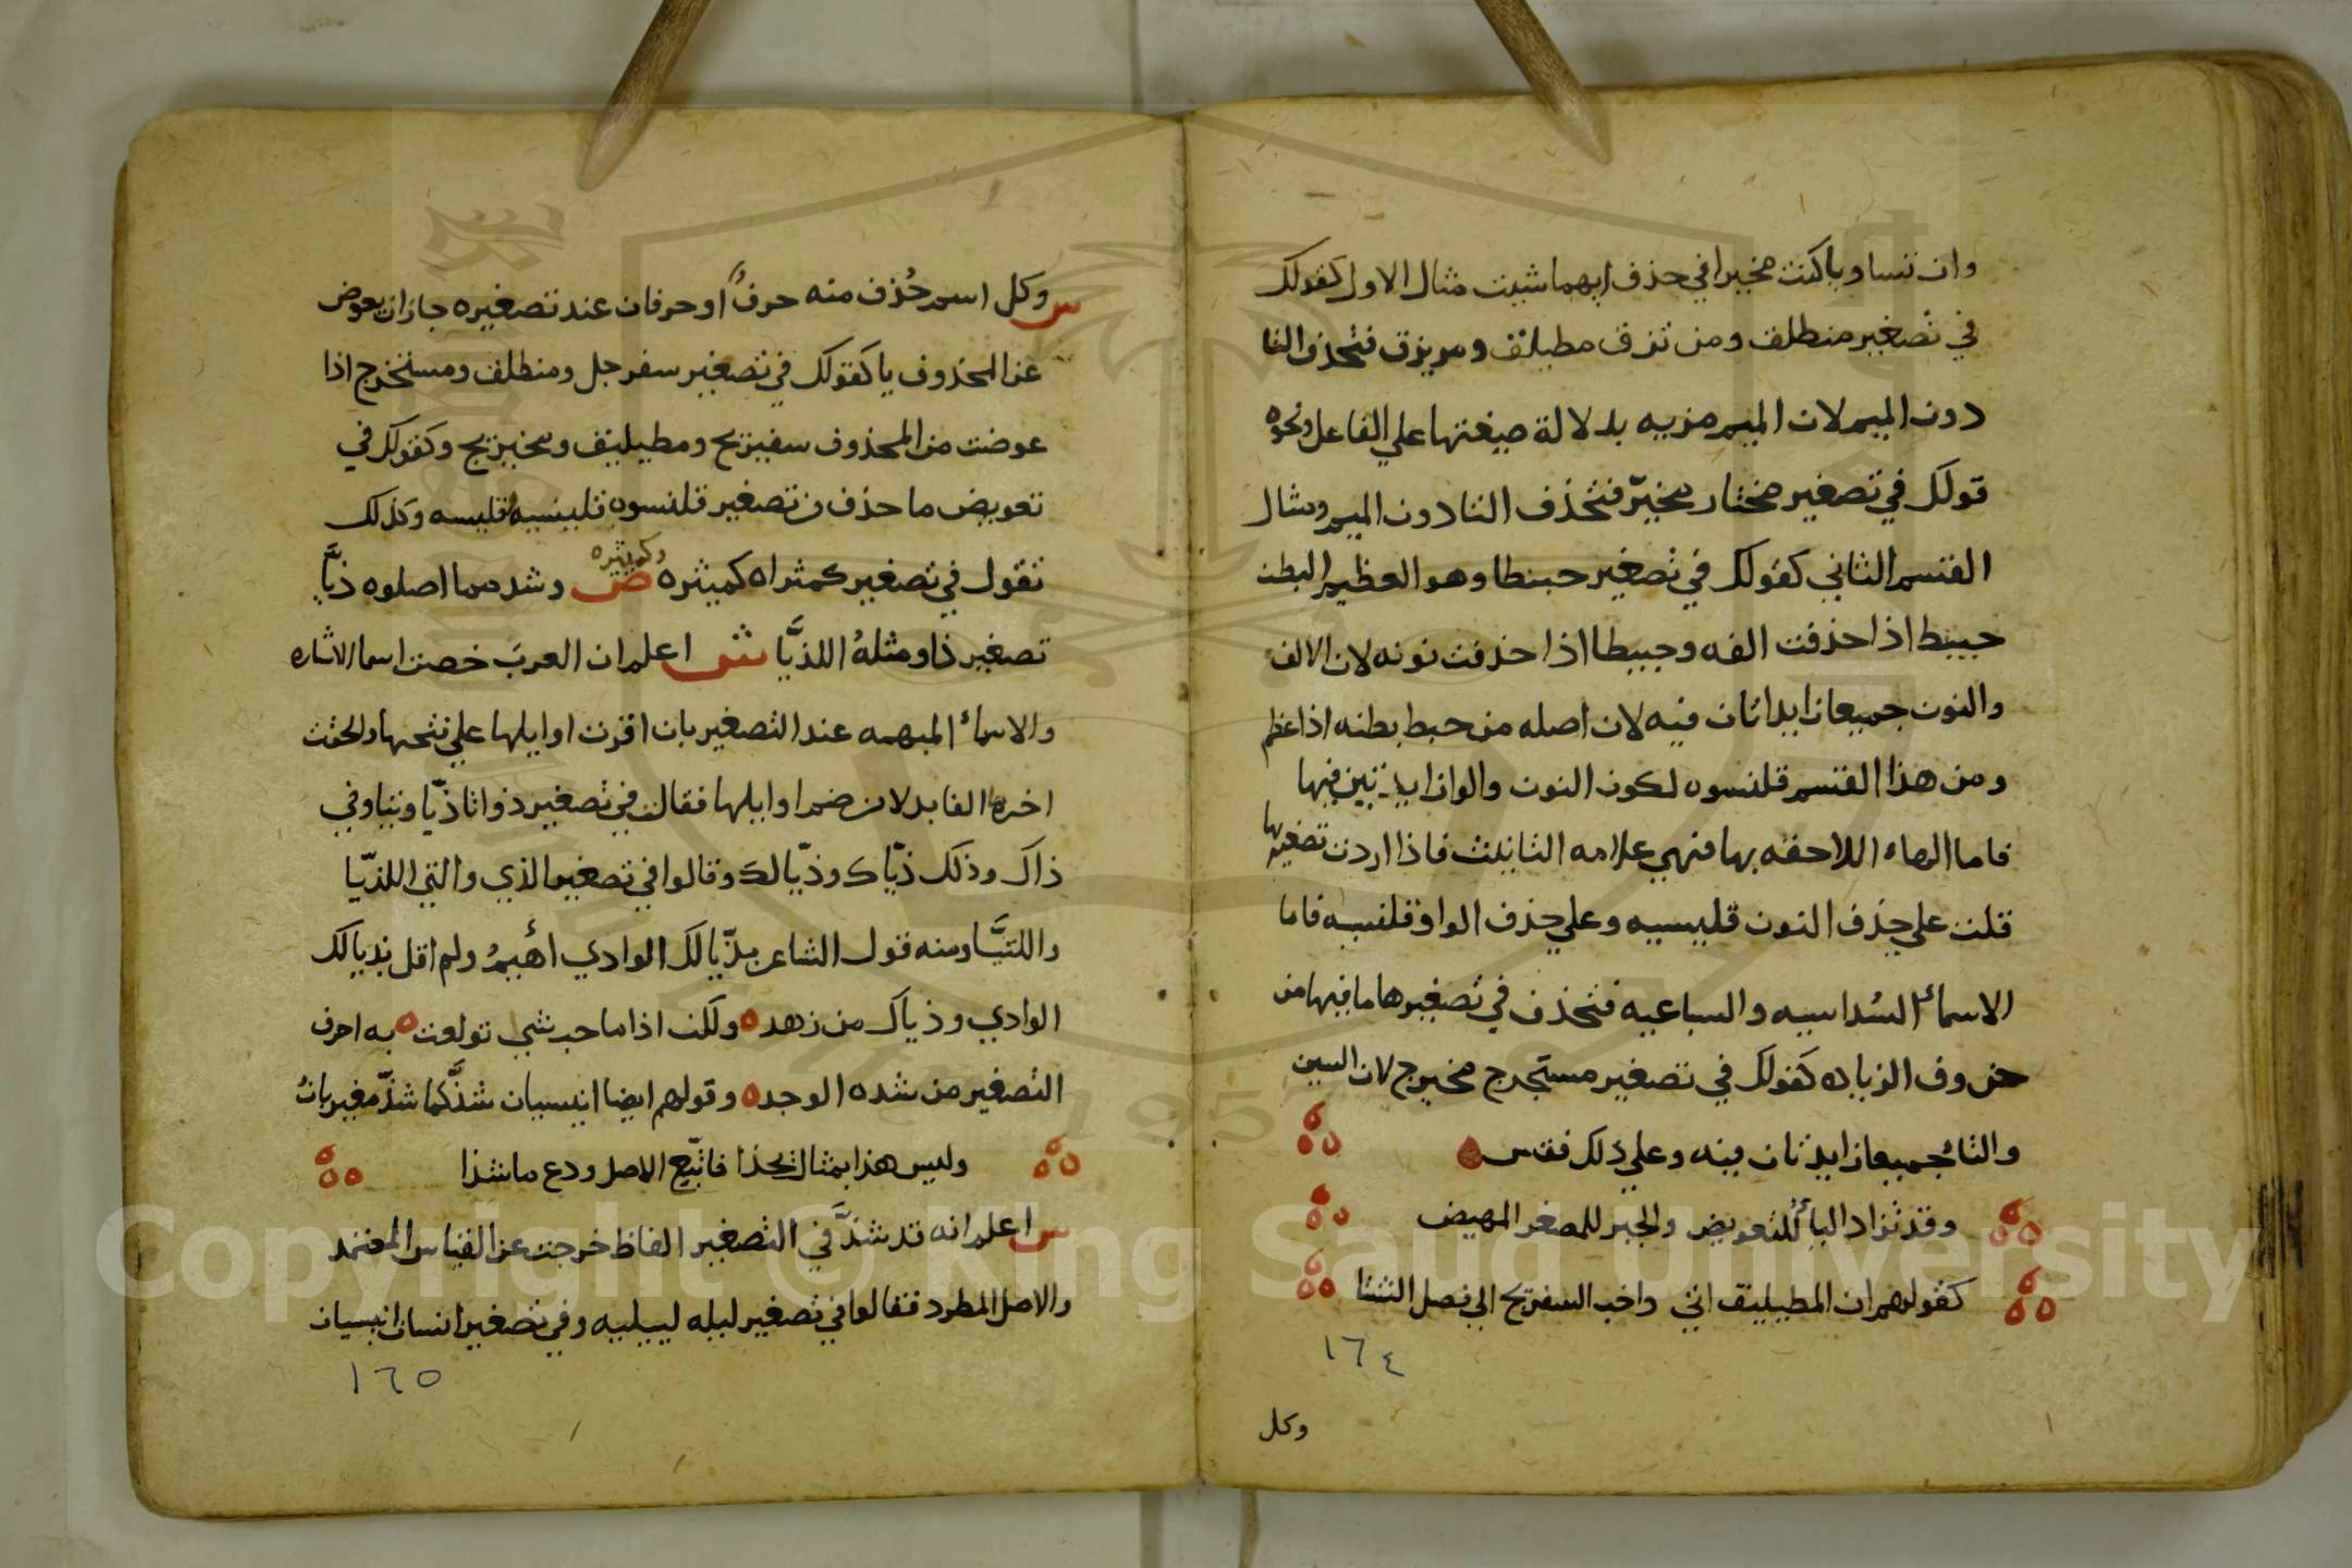 وان تساويا كنت مخيرا في حذف ايهما شيت مثال الاول كقولك
في تصغير منطلق ومن تزق مطيلق ومريزق فتحذف النا
دون الميم لان الميم مزيه بدلالة صيغتها علي الفاعل ونحوه
قولك في تصغير مختار مخيّر فتحذف التا دون الميم ومثال
القسم الثاني كقولك في تصغير حبنطا وهو العظيم البطن
حبيط اذا حذفت الفه وحبيطا اذا حذفت نونه لان الالف
والنون جميعا زايداتان فيه لان اصله من حبط بطنه اذا عظم
ومن هذا القسم قلنسوه لكون النون والواو زايدتين فيها
فاما الهاء اللاحقه بها فهي علامه التانيث فاذا اردت تصغيرها
قلت علي حذف النون قليسيه وعلي حذف الواو قلنسيه فاما
الاسماء السُداسيه والسباعيه فتحذف في تصغيرها ما فيها من
حروف الزياده كقولك في تصغير مستخرج مخيرج لان السين
والتاُ جميعا زايدتان فيه وعلي ذلك فقس
وقد تزاد الياءُ للتعويض والجبر للمصغر المهيض
كقولهم ان المطيليق اتي واخب السفيريج الي فصل الشتا
١٦٤
وكل
س وكل اسم حُذف منه حرفٌ او حرفان عند تصغيره جاز ان يعوض
عن المحذوف يا كقولك في تصغير سفرجل ومنطلق ومستخرج اذا
عوضت من المحذوف سفيريج ومطيليق ومخيريج وكقولك في
تعويض ما حذف من تصغير قلنسوه قلينسيه قليسيه وكذلك
تقول في تصغير كمثراه كميثره وكميثيره ص وشد مما اصلوه ذيَّا
تصغير ذا ومثلهُ اللذيَّا ش اعلم ان العربَ خصت اسما الاشاره
والاسماءُ المبهمه عند التصغير بان اقرت اوايلها علي فتحها والحقت
اخرها الفا بدلا من ضم اوايلها فقالت في تصغير ذو اتا ذيّا وتيا وفي
ذاك وذلك ذيّاك وذيّالك وقالوا في تصغير الذي والتي اللذيّا
واللتيَّا ومنه قول الشاعر بذيّالك الوادي اُهيمُ ولم اقل بذيالك
الوادي وذياك من زهد ولكن اذا ما حب شي تولعت به احرف
التصغير من شده الوجد وقولهم ايضا انيسيان شذَّ كما شذّ مغيربانُ
وليس هذا بمثال يُحذا فاتبّع الاصل ودع ما شذا
س اعلم انه قد شذَّ في التصغير الفاظ خرجت عن القياس المعتمد
والاصل المطرد فقالوا في تصغير ليله لييليه وفي تصغير انسان انيسيان
١٦٥
Copyright © King Saud University
1957